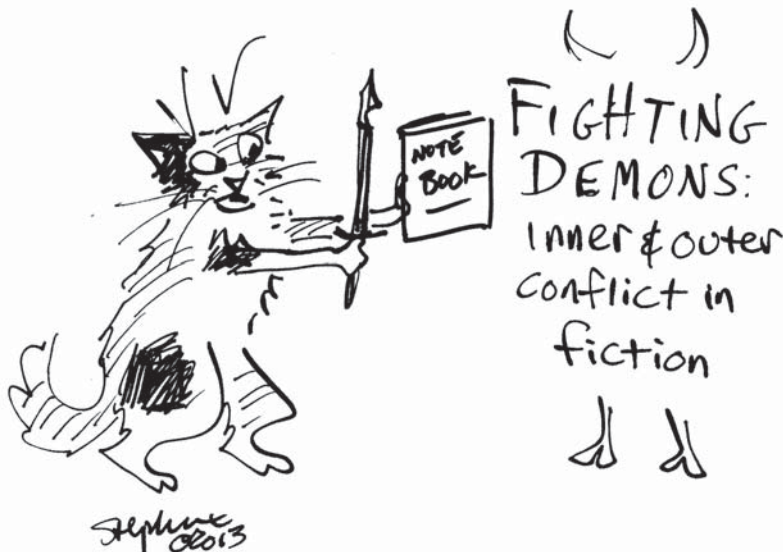 NOTE
BOOK
FIGHTING
DEMONS:
Inner & outer
conflict in
fiction
©2013